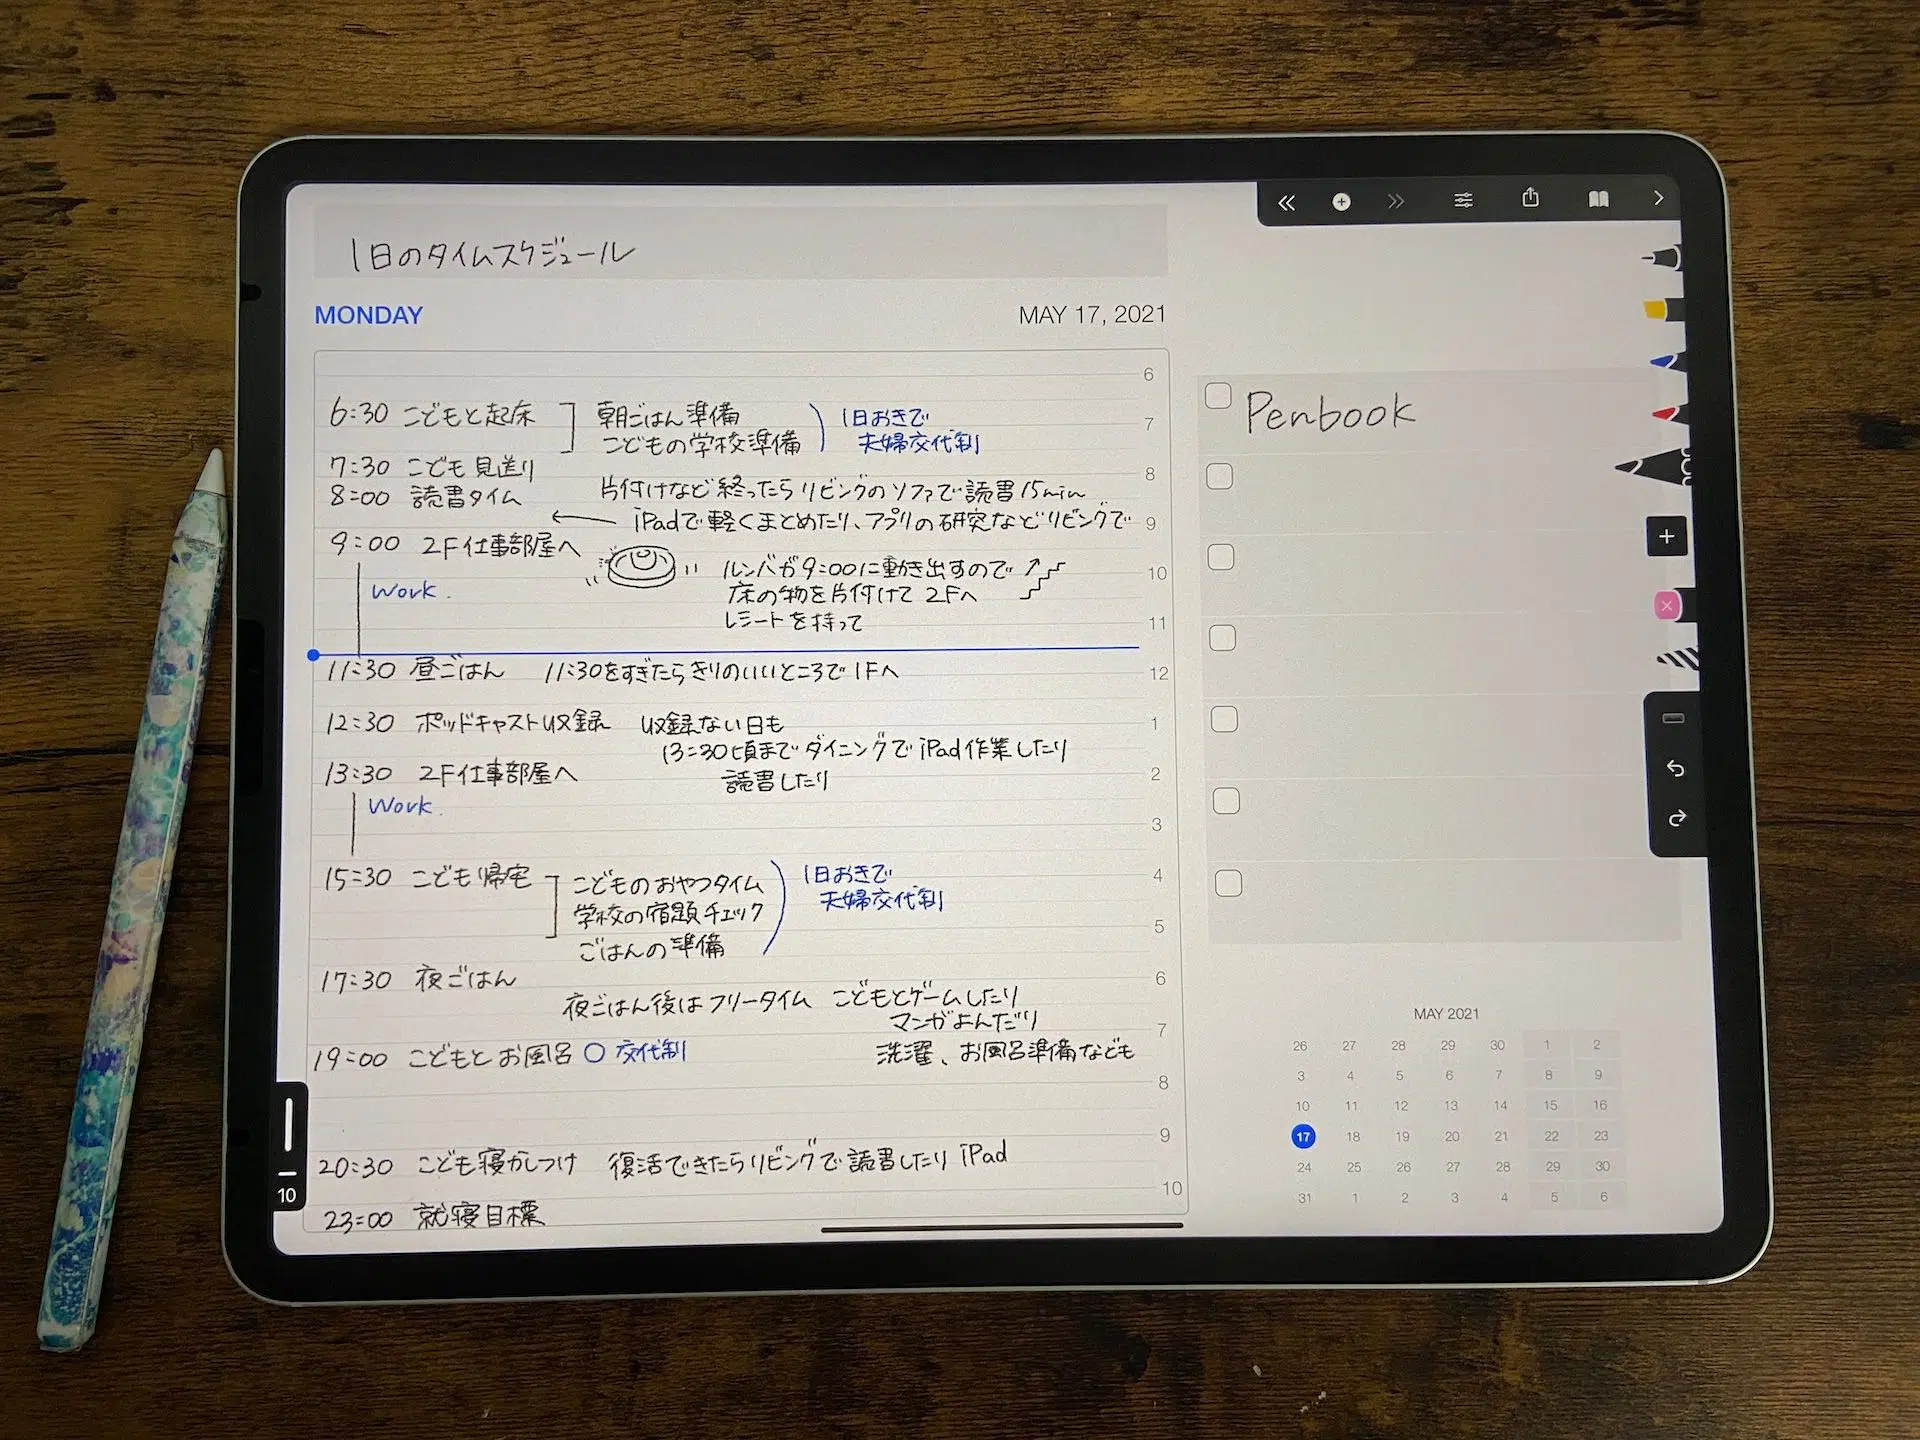 1日のタイムスケジュール
MONDAY
MAY 17, 2021
6
6:30 こどもと起床
朝ごはん準備
こどもの学校準備
1日おきで
夫婦交代制
7
7:30 こども見送り
8
8:00 読書タイム
片付けなど終ったらリビングのソファで読書15min
iPadで軽くまとめたり、アプリの研究などリビングで
9
9:00 2F仕事部屋へ
Work.
ルンバが9:00に動き出すので
床の物を片付けて2Fへ
レシートを持って
10
11
11:30 昼ごはん 11:30をすぎたらきりのいいところで1Fへ
12
12:30 ポッドキャスト収録 収録ない日も
13:30頃までダイニングでiPad作業したり
読書したり
1
13:30 2F仕事部屋へ
Work.
2
3
15:30 こども帰宅
こどものおやつタイム
学校の宿題チェック
ごはんの準備
1日おきで
夫婦交代制
4
5
17:30 夜ごはん
6
夜ごはん後はフリータイム こどもとゲームしたり
マンガよんだり
7
洗濯、お風呂準備なども
19:00 こどもとお風呂 ○ 交代制
8
9
20:30 こども寝かしつけ 復活できたらリビングで読書したりiPad
10
23:00 就寝目標
10
Penbook
MAY 2021
26 27 28 29 30 1 2
3 4 5 6 7 8 9
10 11 12 13 14 15 16
17 18 19 20 21 22 23
24 25 26 27 28 29 30
31 1 2 3 4 5 6